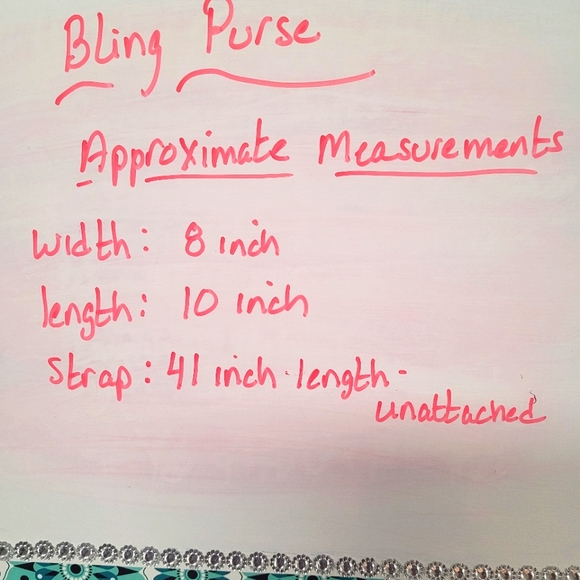 Bling Purse
Approximate Measurements
width: 8 inch
length: 10 inch
Strap: 41 inch length -
unattached